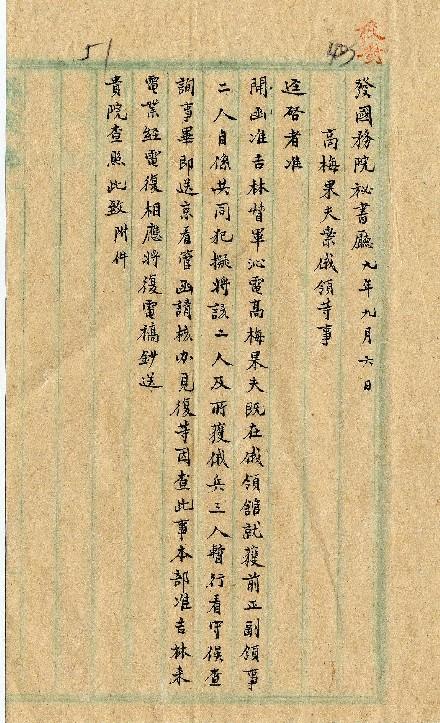 校對
403
51
發國務院祕書廳 九年九月六日
高梅果夫案俄領等事
逕啓者准
開函准吉林督軍沁電高梅果夫旣在俄領館就獲前正副領事
二人自係共同犯擬將該二人及所獲俄兵三人暫行看守俟查
詢事畢即送京看管函請核办見復等因查此事本部准吉林来
電業經電復相應將復電稿鈔送
貴院查照此致 附件